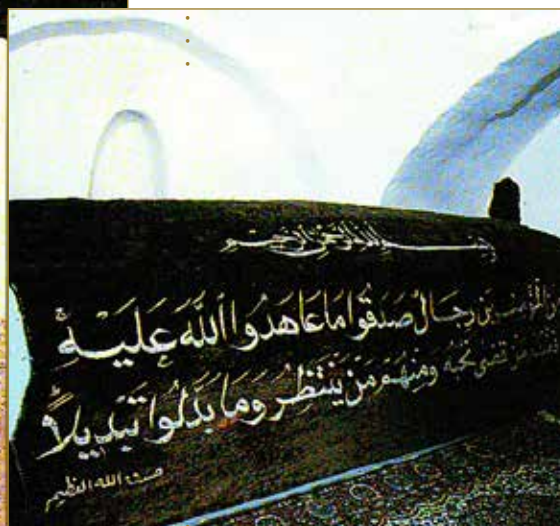 بسم الله الرحمن الرحيم
من المؤمنين رجال صدقوا ما عاهدوا الله عليه
فمنهم من قضى نحبه ومنهم من ينتظر وما بدلوا تبديلاً
صدق الله العظيم